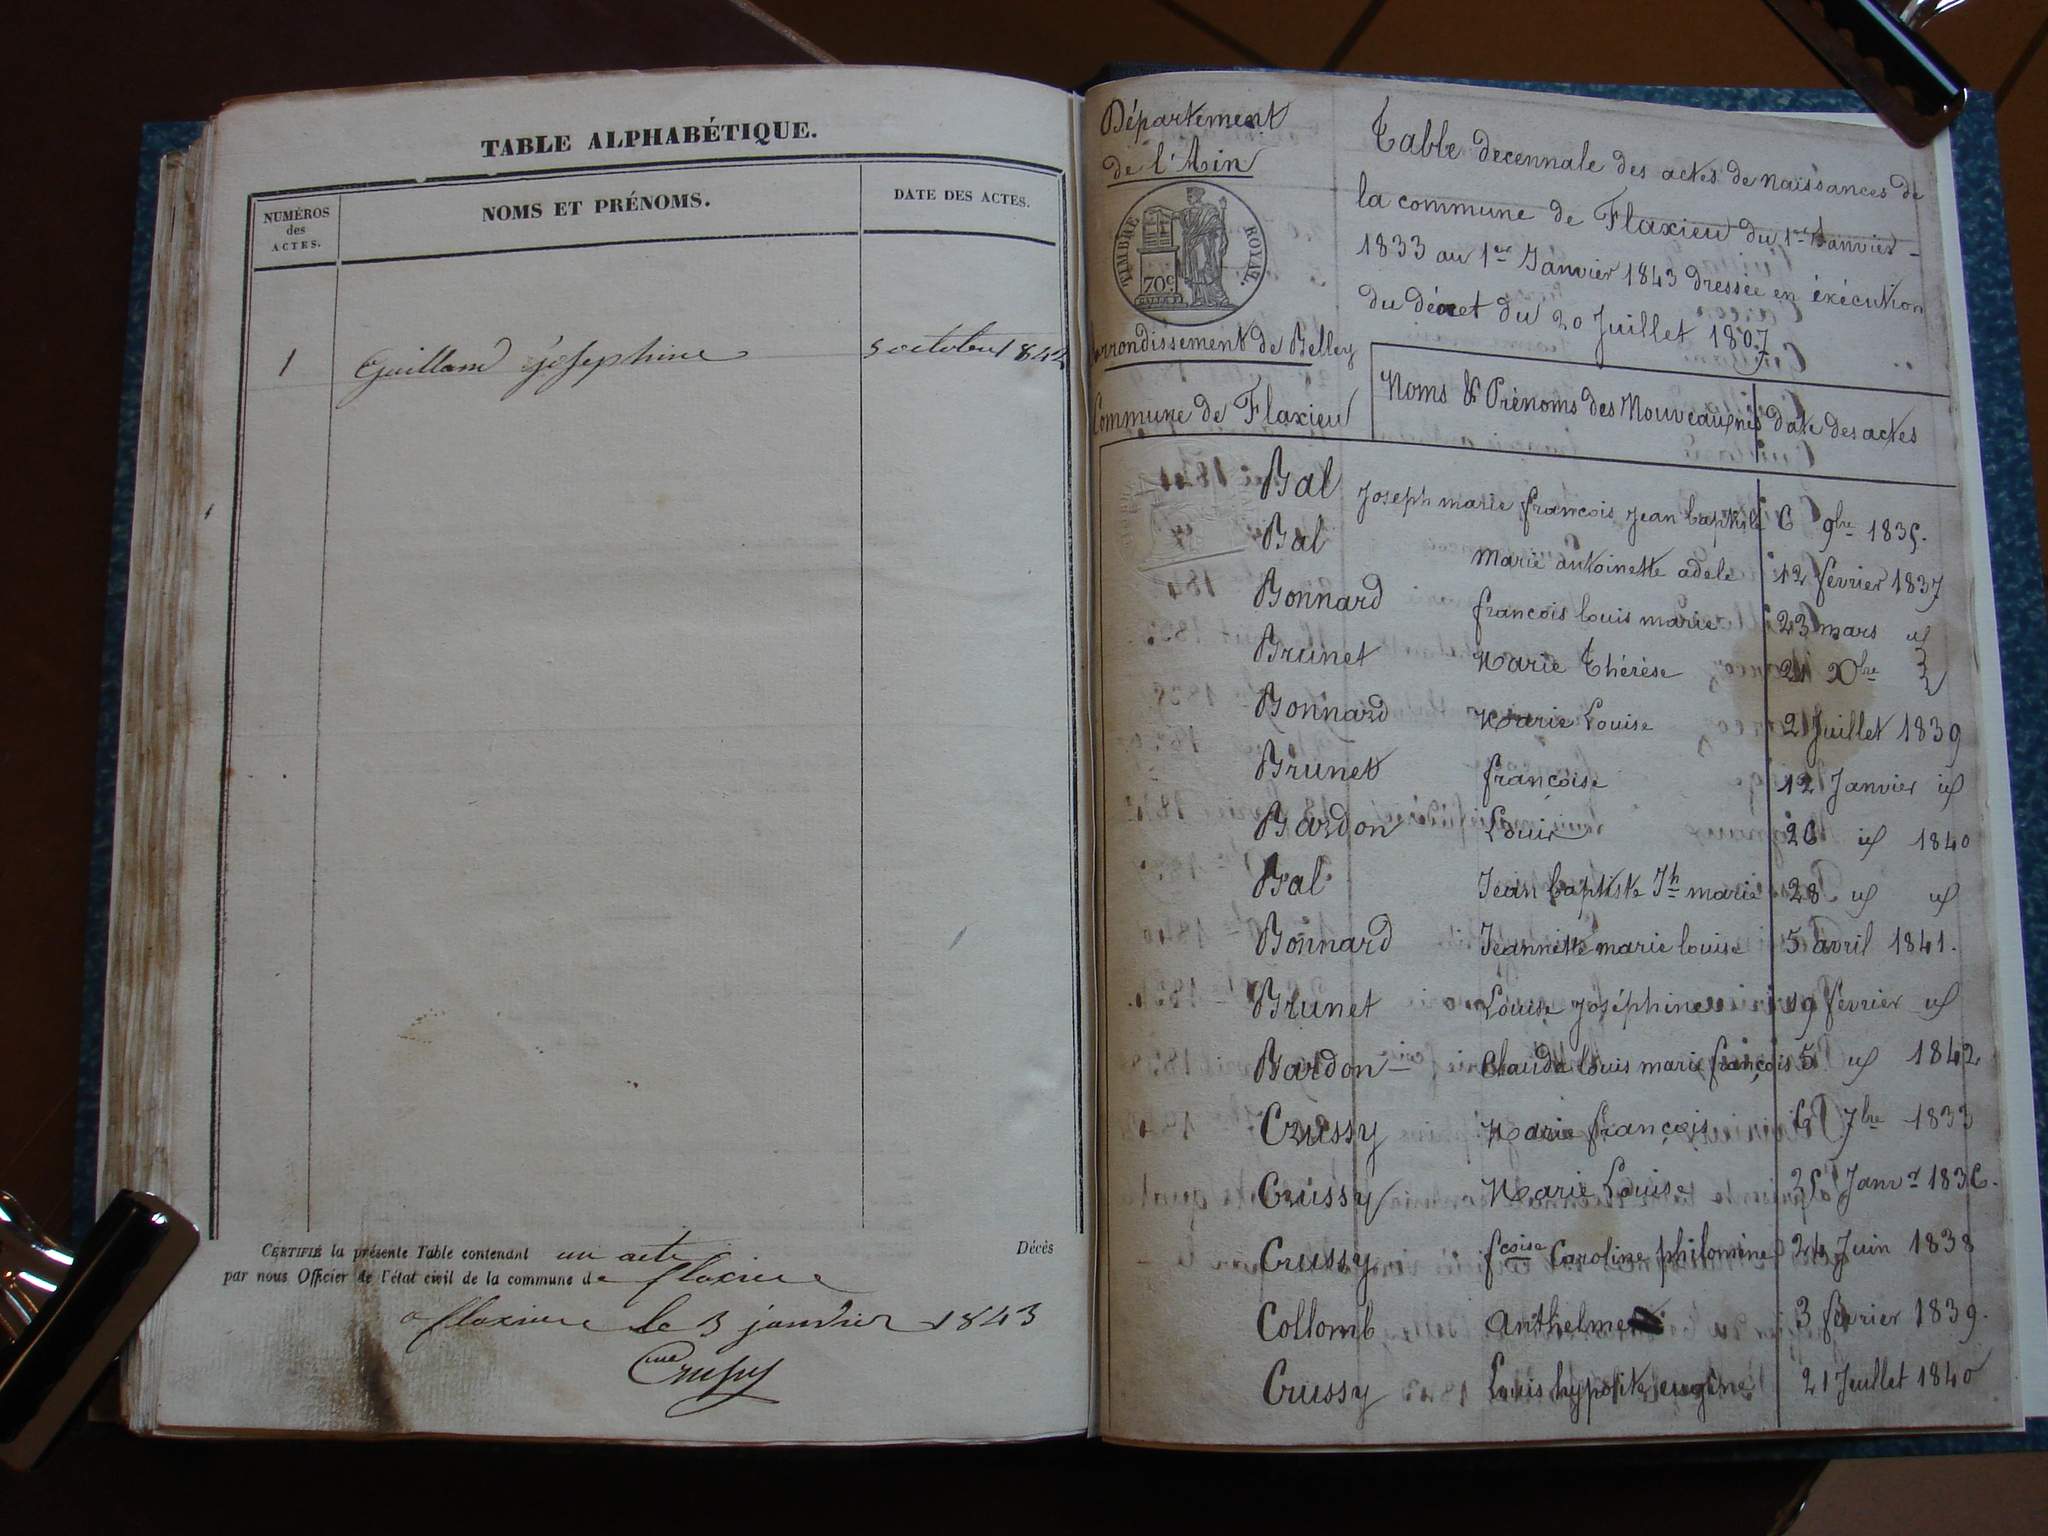 TABLE ALPHABÉTIQUE.
NUMÉROS des ACTES.
NOMS ET PRÉNOMS.
DATE DES ACTES.
1 Guilland josephine 5 octobre 1842
CERTIFIÉ la présente Table contenant un acte Décès
par nous Officier de l'état civil de la commune de flaxieu
a flaxieu le 3 janvier 1843
Crussy
Département
de l'Ain
TIMBRE ROYAL
70c
Arrondissement de Belley
Commune de Flaxieu
Table decennale des actes de naissances de
la commune de Flaxieu du 1er Janvier
1833 au 1er Janvier 1843 dressée en éxécution
du décret du 20 Juillet 1807
Noms & Prénoms des Nouveaux nés date des actes
Bal Joseph marie francois Jean baptiste 6 9bre 1835.
Bal Marie antoinette adele 12 février 1837
Bonnard francois louis marie 23 mars id
Brunet Marie Thérèse 21 Xbre
Bonnard Marie Louise 2 Juillet 1839
Brunet françoise 12 Janvier id
Bardon Louis 26 id 1840
Bal Jean baptiste Jh marie 28 id id
Bonnard Jeannette marie louise 5 avril 1841.
Brunet Louise Joséphine 19 février id
Bardon Claude louis marie françois 5 id 1842
Crussy Marie françois 7bre 1833
Crussy Marie Louise Janvr 1836.
Crussy fcoise Caroline philomine 24 Juin 1838
Collomb Anthelme 3 fevrier 1839.
Crussy Louis hypolite eugène 21 Juillet 1840